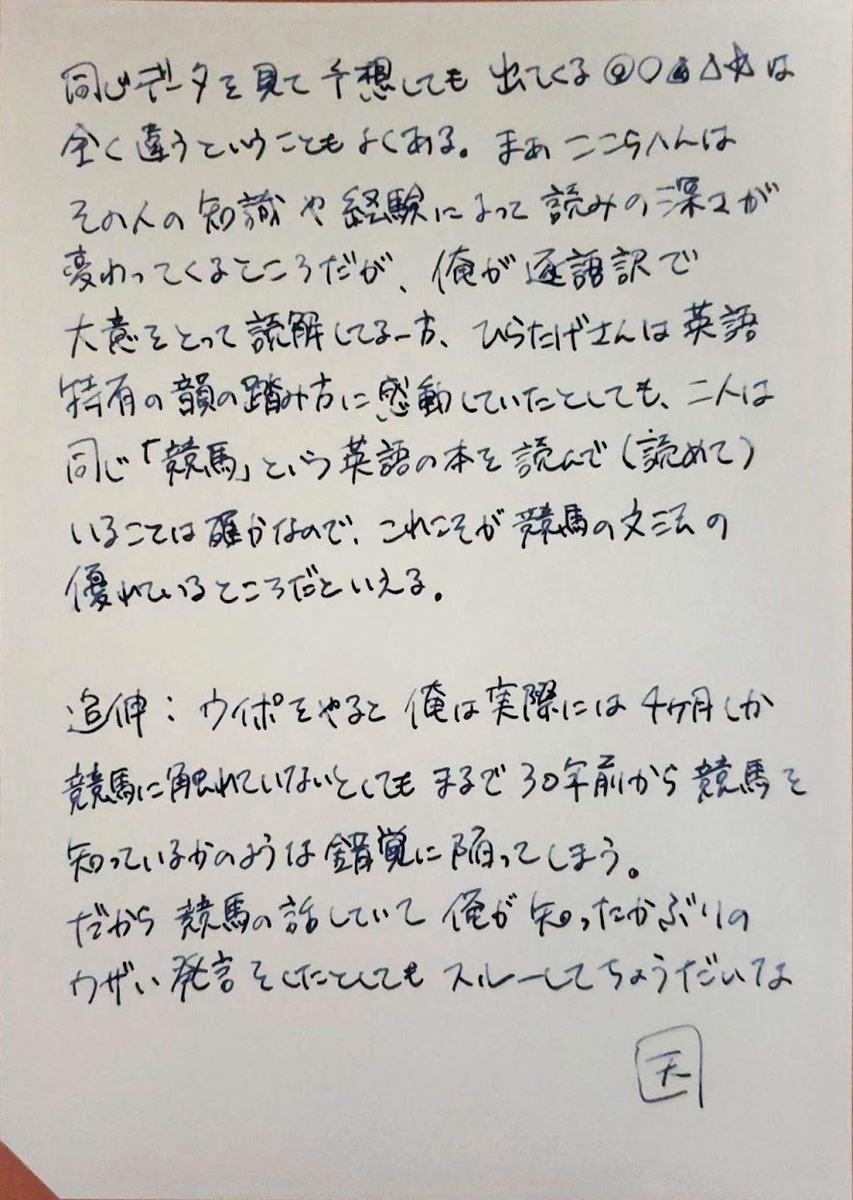 同じデータを見て予想しても出てくる◎○▲△☆は
全く違うということもよくある。まぁここらへんは
その人の知識や経験によって読みの深さが
変わってくるところだが、俺が逐語訳で
大意をとって読解してる一方、ひらたげさんは英語
特有の韻の踏み方に感動していたとしても、二人は
同じ「競馬」という英語の本を読んで(読めて)
いることは確かなので、これこそが競馬の文法の
優れているところだといえる。
追伸：ウイポをやると俺は実際には4ヶ月しか
競馬に触れていないとしてもまるで30年前から競馬を
知っているかのような錯覚に陥ってしまう。
だから競馬の話していて俺が知ったかぶりの
ウザい発言をしたとしてもスルーしてちょうだいな
天